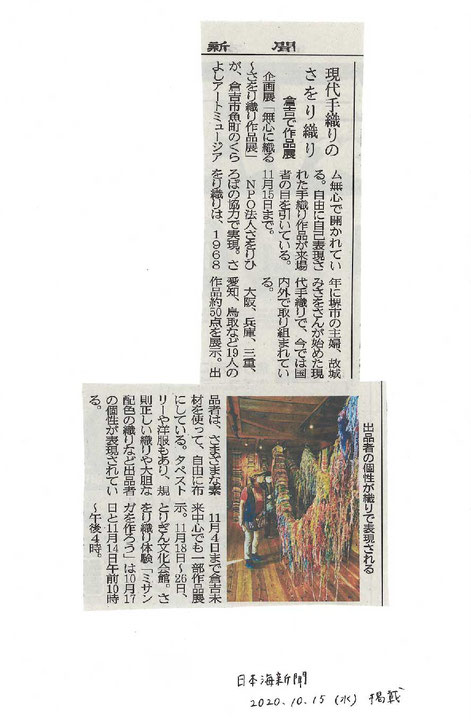 新聞
現代手織りの
さをり織り
倉吉で作品展
企画展「無心に織る
～さをり織り作品展」
が、倉吉市魚町のくら
よしアートミュージア
ム無心で開かれてい
る。自由に自己表現さ
れた手織り作品が来場
者の目を引いている。
11月15日まで。
NPO法人さをりひ
ろばの協力で実現。さ
をり織りは、1968
年に堺市の主婦、故城
みさをさんが始めた現
代手織りで、今では国
内外で取り組まれてい
る。
大阪、兵庫、三重、
愛知、鳥取など19人の
作品約50点を展示。出
品者は、さまざまな素
材を使って、自由に布
にしている。タペスト
リーや洋服もあり、規
則正しい織りや大胆な
配色の織りなど出品者
の個性が表現されてい
る。
11月4日まで倉吉未
来中心でも一部作品展
示。11月18日～26日、
とりぎん文化会館。さ
をり織り体験「ミサン
ガを作ろう」は10月17
日と11月14日午前10時
～午後4時。
出品者の個性が織りで表現される
日本海新聞
2020.10.15 (水) 掲載